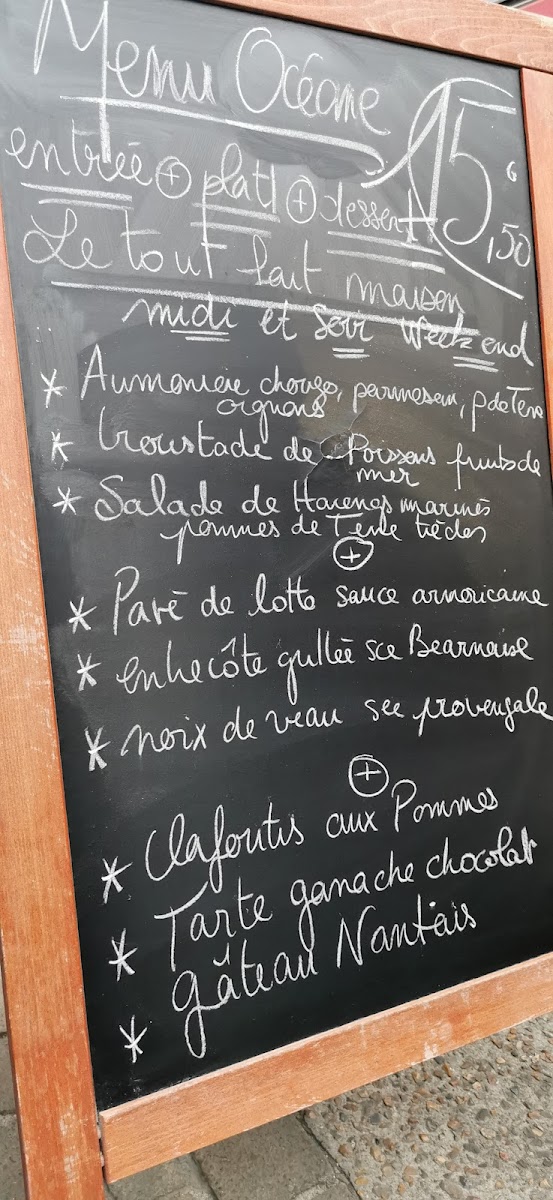 Menu Océane 15,50 €
entrée + plat + dessert
Le tout fait maison
midi et Soir Week end
* Aumonière chorizo, parmesan, p de Terre
oignons
* Croustade de Poissons fruits de
mer
* Salade de Harengs marinés
pommes de Terre tièdes
+
* Pavé de lotte sauce armoricaine
* entrecôte grillée sce Bearnaise
* noix de veau sce provençale
+
* Clafoutis aux Pommes
* Tarte ganache chocolat
* gâteau Nantais